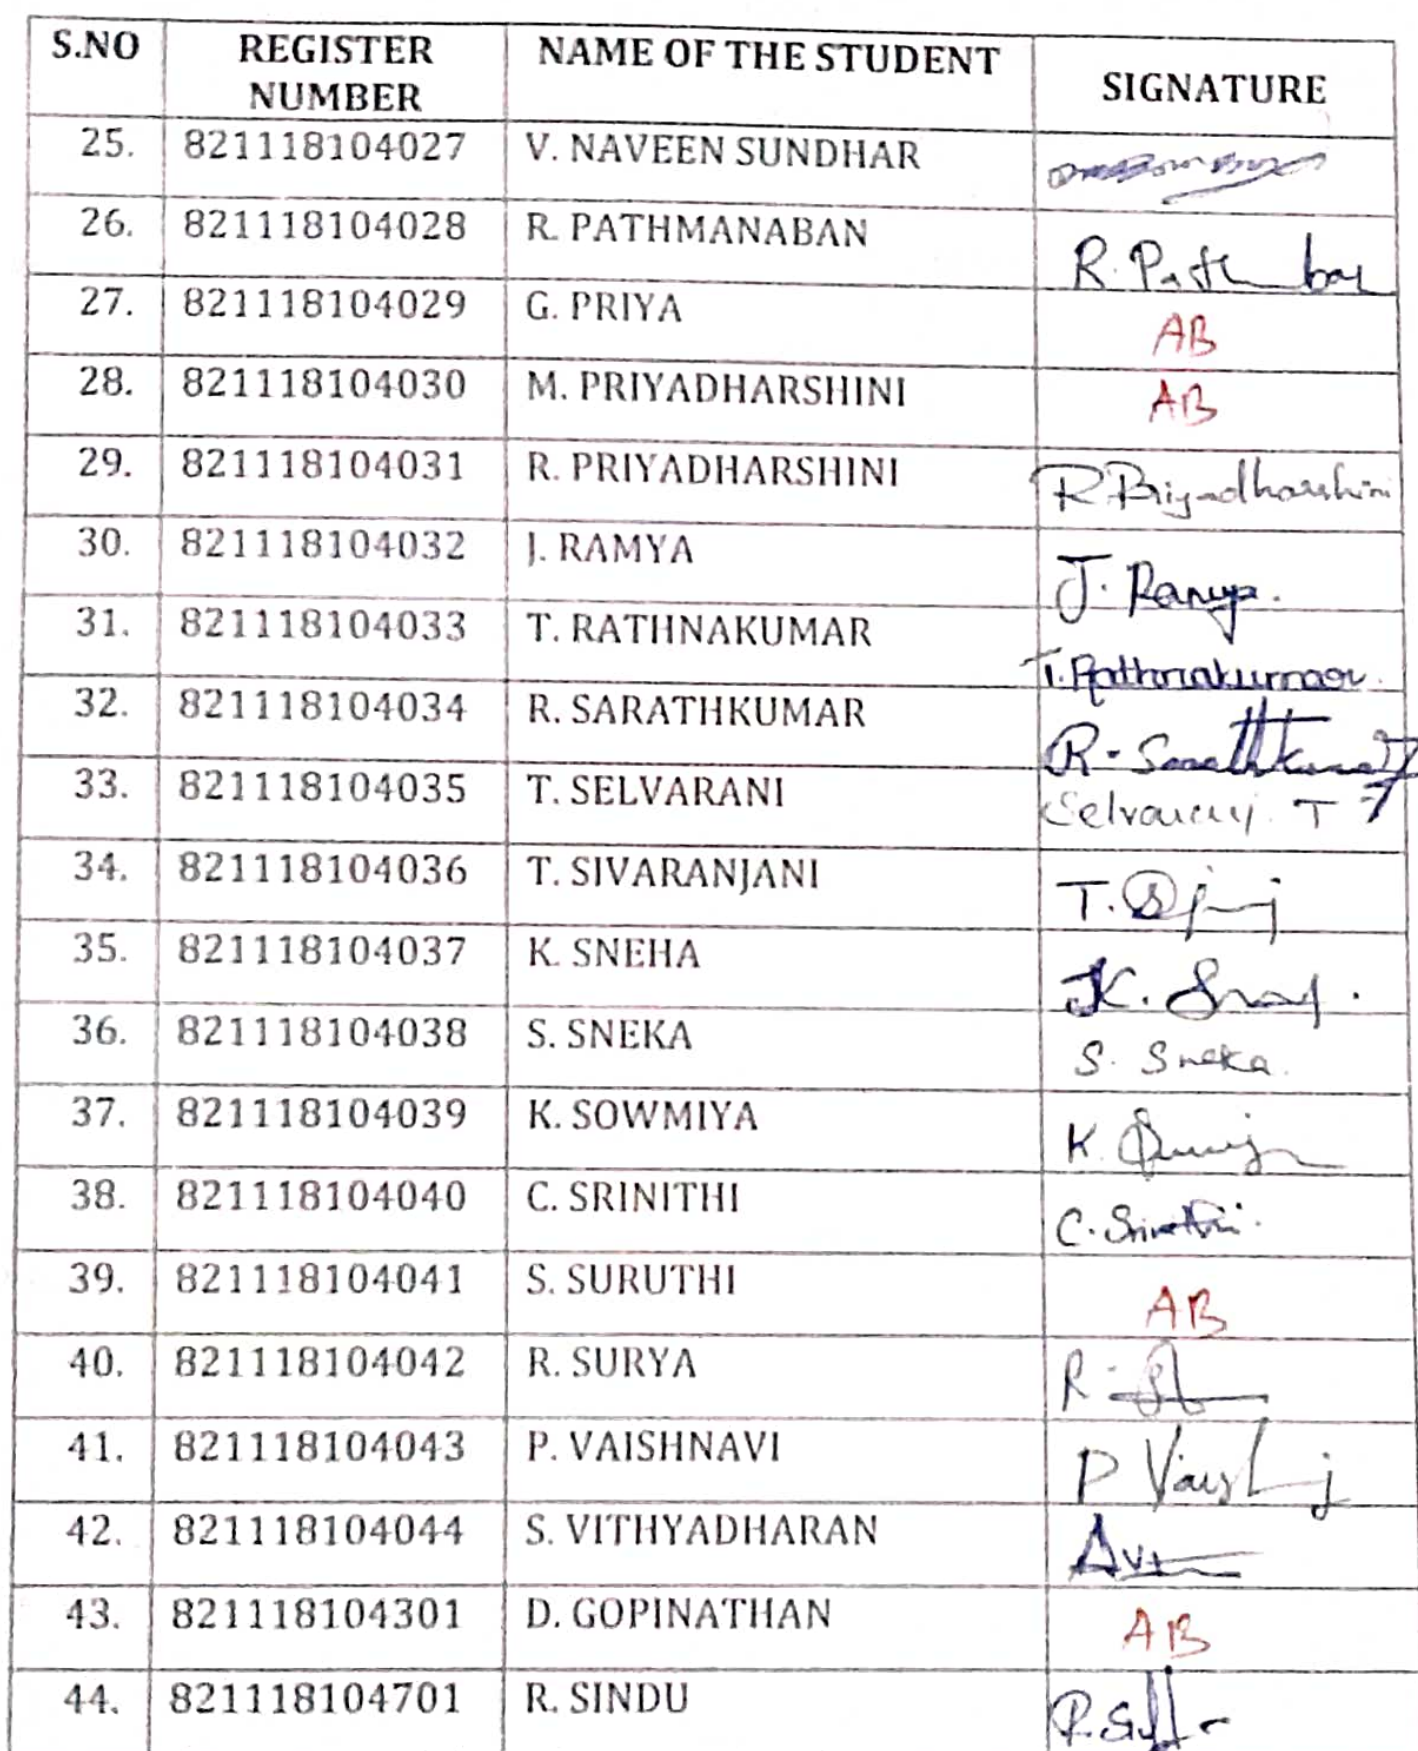 S.NO REGISTER NUMBER NAME OF THE STUDENT SIGNATURE
25. 821118104027 V. NAVEEN SUNDHAR
26. 821118104028 R. PATHMANABAN
27. 821118104029 G. PRIYA AB
28. 821118104030 M. PRIYADHARSHINI AB
29. 821118104031 R. PRIYADHARSHINI R. Priyadharshini
30. 821118104032 J. RAMYA J. Ramya.
31. 821118104033 T. RATHNAKUMAR T. Rathnakumar.
32. 821118104034 R. SARATHKUMAR R. Sarathkumar
33. 821118104035 T. SELVARANI Selvarani. T
34. 821118104036 T. SIVARANJANI T.
35. 821118104037 K. SNEHA K.
36. 821118104038 S. SNEKA S. Sneka.
37. 821118104039 K. SOWMIYA K.
38. 821118104040 C. SRINITHI C. Srinithi.
39. 821118104041 S. SURUTHI AB
40. 821118104042 R. SURYA R.
41. 821118104043 P. VAISHNAVI P
42. 821118104044 S. VITHYADHARAN
43. 821118104301 D. GOPINATHAN AB
44. 821118104701 R. SINDU R.